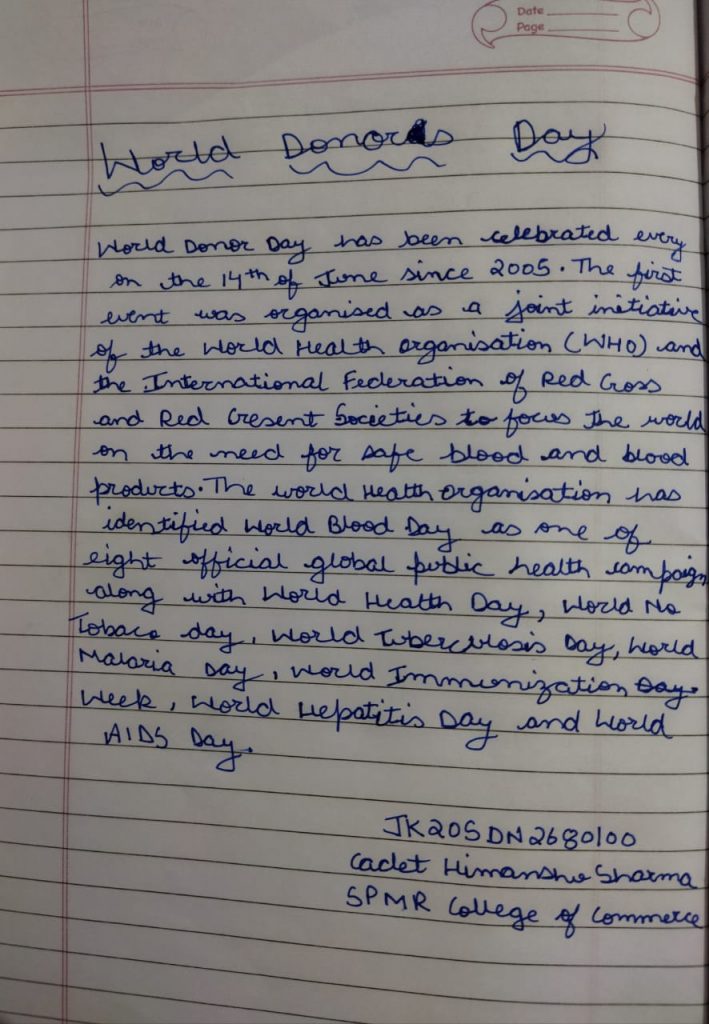 Date
Page
World Donors Day
World Donor Day has been celebrated every
on the 14th of June since 2005. The first
event was organised as a joint initiative
of the World Health organisation (WHO) and
the International Federation of Red Cross
and Red Cresent Societies to focus the world
on the need for safe blood and blood
products. The world Health organisation has
identified World Blood Day as one of
eight official global public health campaign
along with World Health Day, World No
Tobaco day, World Tuberculosis Day, World
Malaria Day, World Immunization Day.
Week, World Hepatitis Day and World
AIDS Day.
JK20SDN2680100
Cadet Himanshu Sharma
SPMR College of Commerce